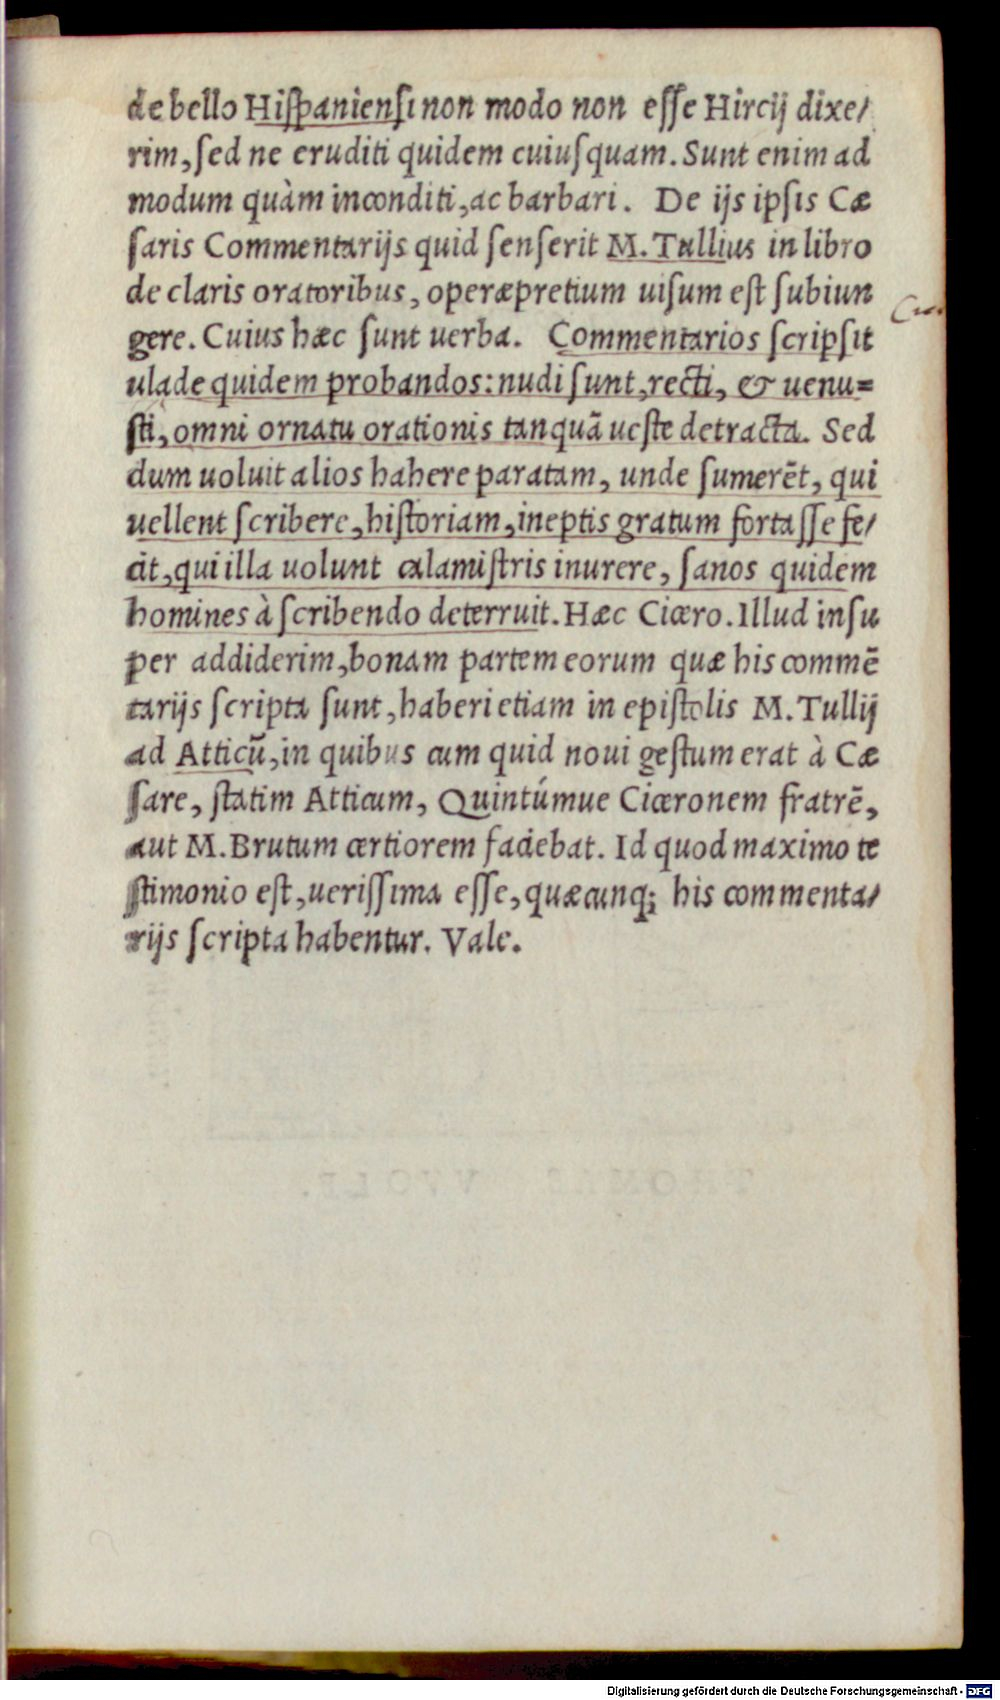 de bello Hiſpanienſi non modo non eſſe Hircij dixe/
rim, ſed ne eruditi quidem cuiuſquam. Sunt enim ad
modum quàm inconditi, ac barbari. De ijs ipſis Cæ
ſaris Commentarijs quid ſenſerit M. Tullius in libro
de claris oratoribus, operæpretium uiſum eſt ſubiun
gere. Cuius hæc ſunt uerba. Commentarios ſcripſit
ualde quidem probandos: nudi ſunt, recti, & uenu=
ſti, omni ornatu orationis tanquā ueſte detracta. Sed
dum uoluit alios habere paratam, unde ſumerēt, qui
uellent ſcribere, hiſtoriam, ineptis gratum fortaſſe fe/
cit, qui illa uolunt calamiſtris inurere, ſanos quidem
homines à ſcribendo deterruit. Hæc Cicero. Illud inſu
per addiderim, bonam partem eorum quæ his commē
tarijs ſcripta ſunt, haberi etiam in epiſtolis M. Tullij
ad Atticū, in quibus cum quid noui geſtum erat à Cæ
ſare, ſtatim Atticum, Quintúmue Ciceronem fratrē,
aut M. Brutum certiorem faciebat. Id quod maximo te
ſtimonio eſt, ueriſſima eſſe, quæcunq; his commenta/
rijs ſcripta habentur. Vale.
Digitalisierung gefördert durch die Deutsche Forschungsgemeinschaft - DFG